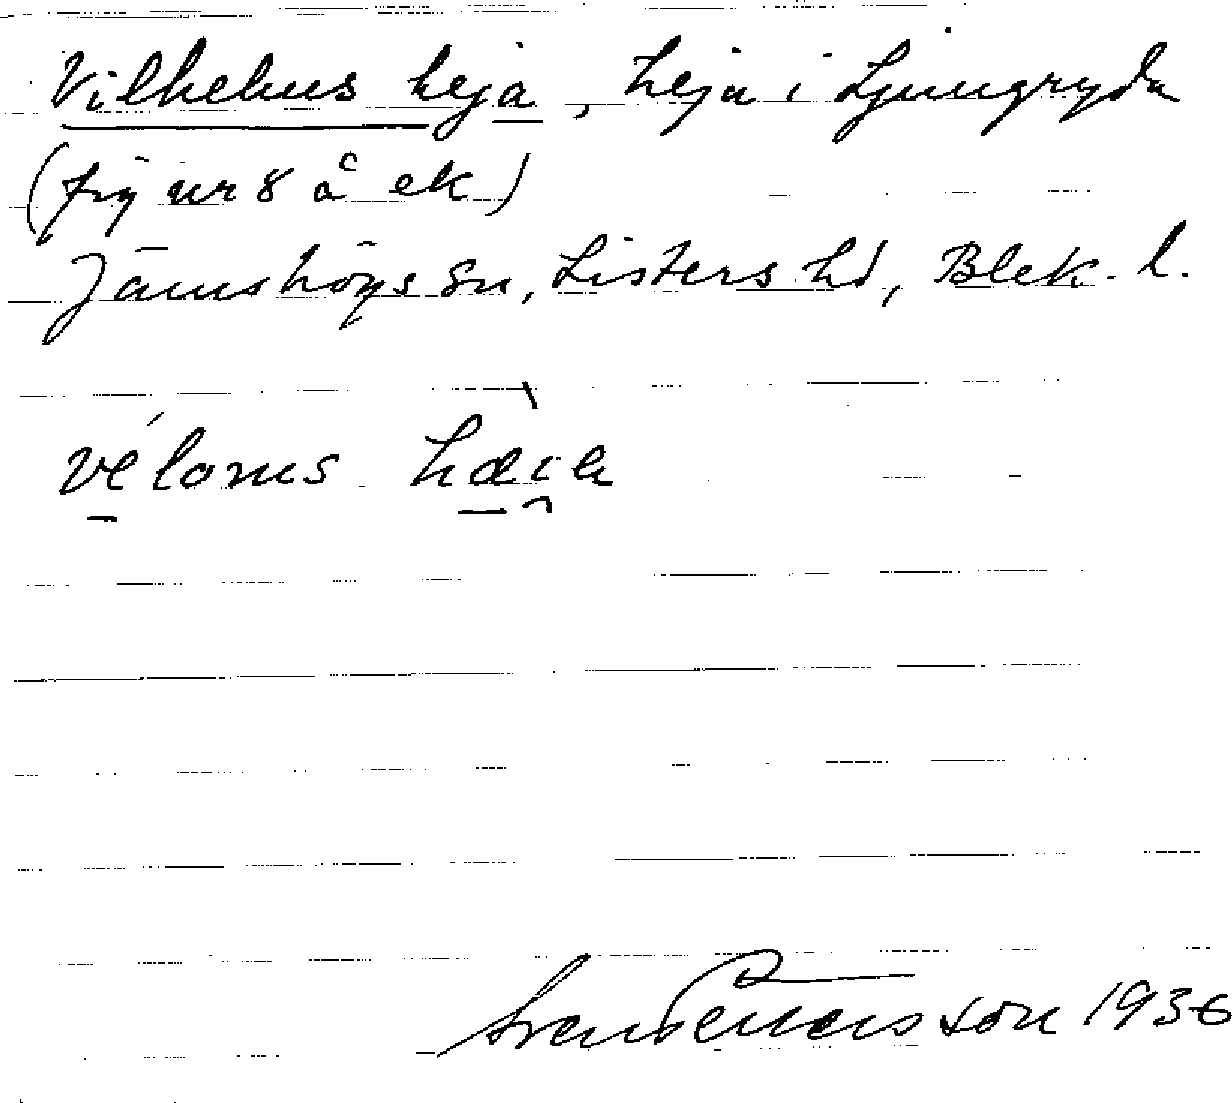 Vilhelms heja, heja i Ljungryda
(fig nr 8 å ek)
Jämshögs sn, Listers hd, Blek. l.
véloms hæia
Sven Pettersson 1936